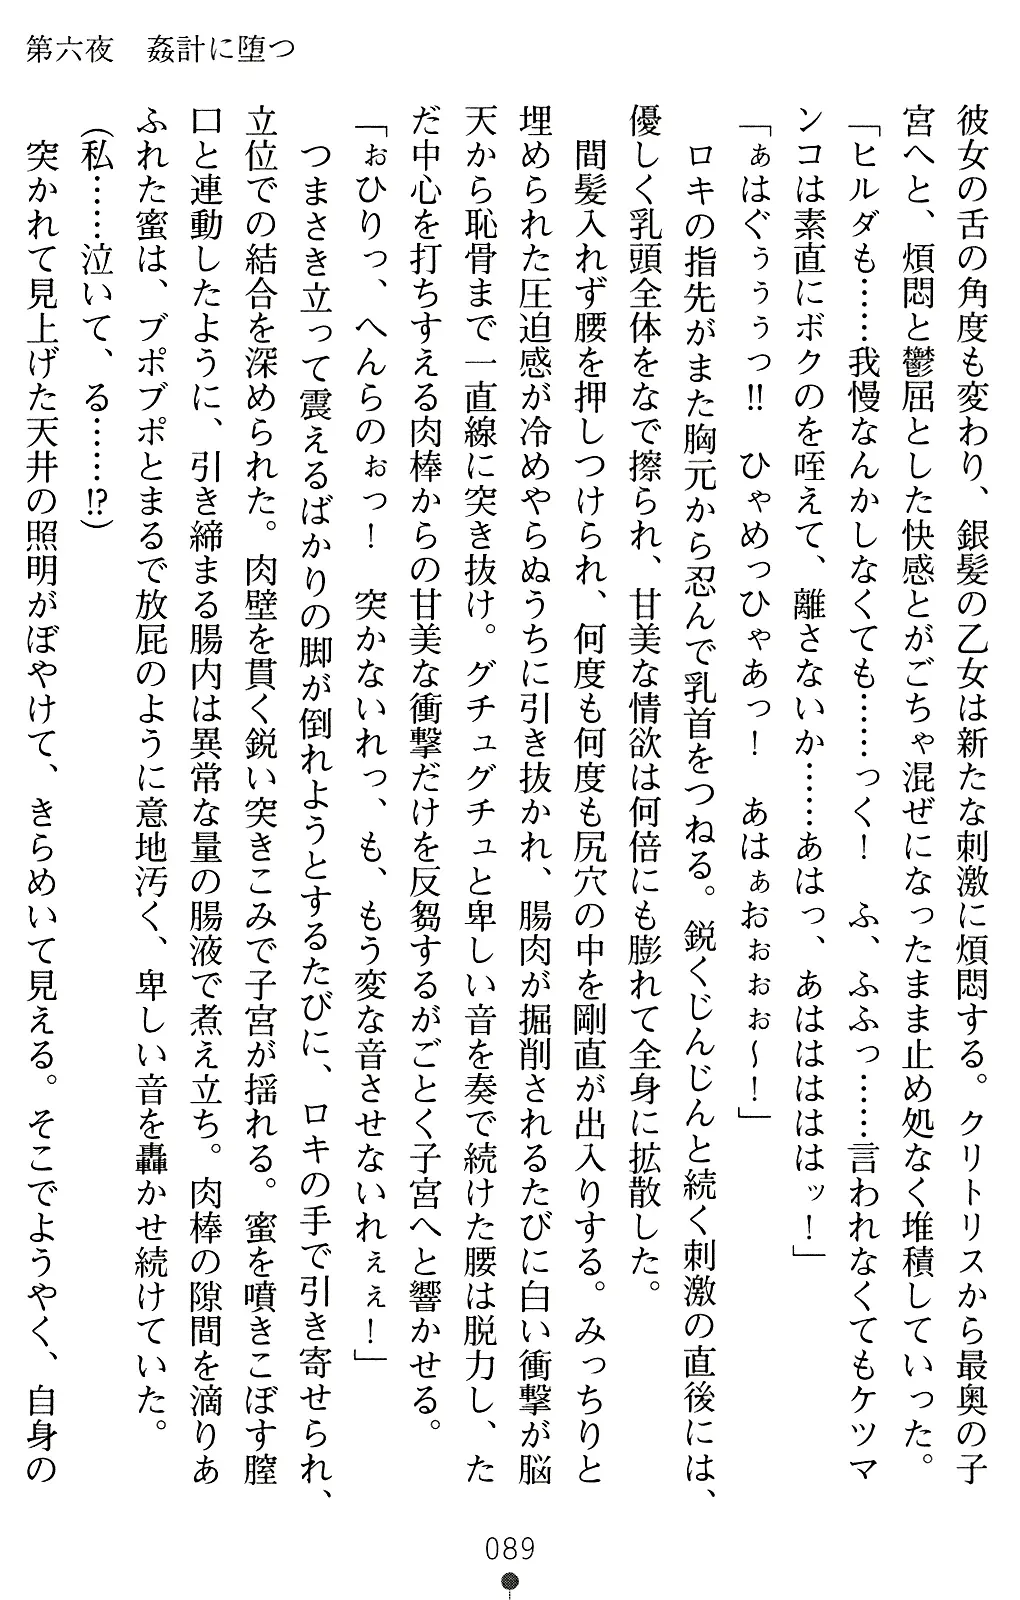 第六夜　姦計に堕つ
彼女の舌の角度も変わり、銀髪の乙女は新たな刺激に煩悶する。クリトリスから最奥の子
宮へと、煩悶と鬱屈とした快感とがごちゃ混ぜになったまま止め処なく堆積していった。
「ヒルダも……我慢なんかしなくても……っく！　ふ、ふふっ……言われなくてもケツマ
ンコは素直にボクのを咥えて、離さないか……あはっ、あはははははッ！」
「ぁはぐぅぅぅっ!!　ひゃめっひゃあっ！　あはぁおぉぉぉ～！」
　ロキの指先がまた胸元から忍んで乳首をつねる。鋭くじんじんと続く刺激の直後には、
優しく乳頭全体をなで擦られ、甘美な情欲は何倍にも膨れて全身に拡散した。
　間髪入れず腰を押しつけられ、何度も何度も尻穴の中を剛直が出入りする。みっちりと
埋められた圧迫感が冷めやらぬうちに引き抜かれ、腸肉が掘削されるたびに白い衝撃が脳
天から恥骨まで一直線に突き抜け。グチュグチュと卑しい音を奏で続けた腰は脱力し、た
だ中心を打ちすえる肉棒からの甘美な衝撃だけを反芻するがごとく子宮へと響かせる。
「ぉひりっ、へんらのぉっ！　突かないれっ、も、もう変な音させないれぇぇ！」
　つまさき立って震えるばかりの脚が倒れようとするたびに、ロキの手で引き寄せられ、
立位での結合を深められた。肉壁を貫く鋭い突きこみで子宮が揺れる。蜜を噴きこぼす膣
口と連動したように、引き締まる腸内は異常な量の腸液で煮え立ち。肉棒の隙間を滴りあ
ふれた蜜は、ブポブポとまるで放屁のように意地汚く、卑しい音を轟かせ続けていた。
（私……泣いて、る………!?）
　突かれて見上げた天井の照明がぼやけて、きらめいて見える。そこでようやく、自身の
089